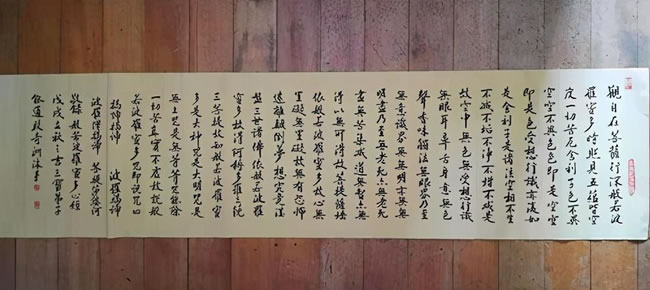 觀自在菩薩行深般若波
羅蜜多時照見五蘊皆空
度一切苦厄舍利子色不異
空空不異色色即是空空
即是色受想行識亦復如
是舍利子是諸法空相不生
不滅不垢不淨不增不減是
故空中無色無受想行識
無眼耳鼻舌身意無色
聲香味觸法無眼界乃至
無意識界無無明亦無無
明盡乃至無老死亦無老死
盡無苦集滅道無智亦無
得以無所得故菩提薩埵
依般若波羅蜜多故心無
罣礙無罣礙故無有恐怖
遠離顛倒夢想究竟涅
槃三世諸佛依般若波羅
蜜多故得阿耨多羅三藐
三菩提故知般若波羅蜜
多是大神咒是大明咒是
無上咒是無等等咒能除
一切苦真實不虛故說般
若波羅蜜多咒即說咒曰
揭諦揭諦 波羅揭諦
波羅僧揭諦 菩提薩婆訶
敬錄般若波羅蜜多心經
戊戌孟秋之吉三寶弟子
道 奇洲沐手